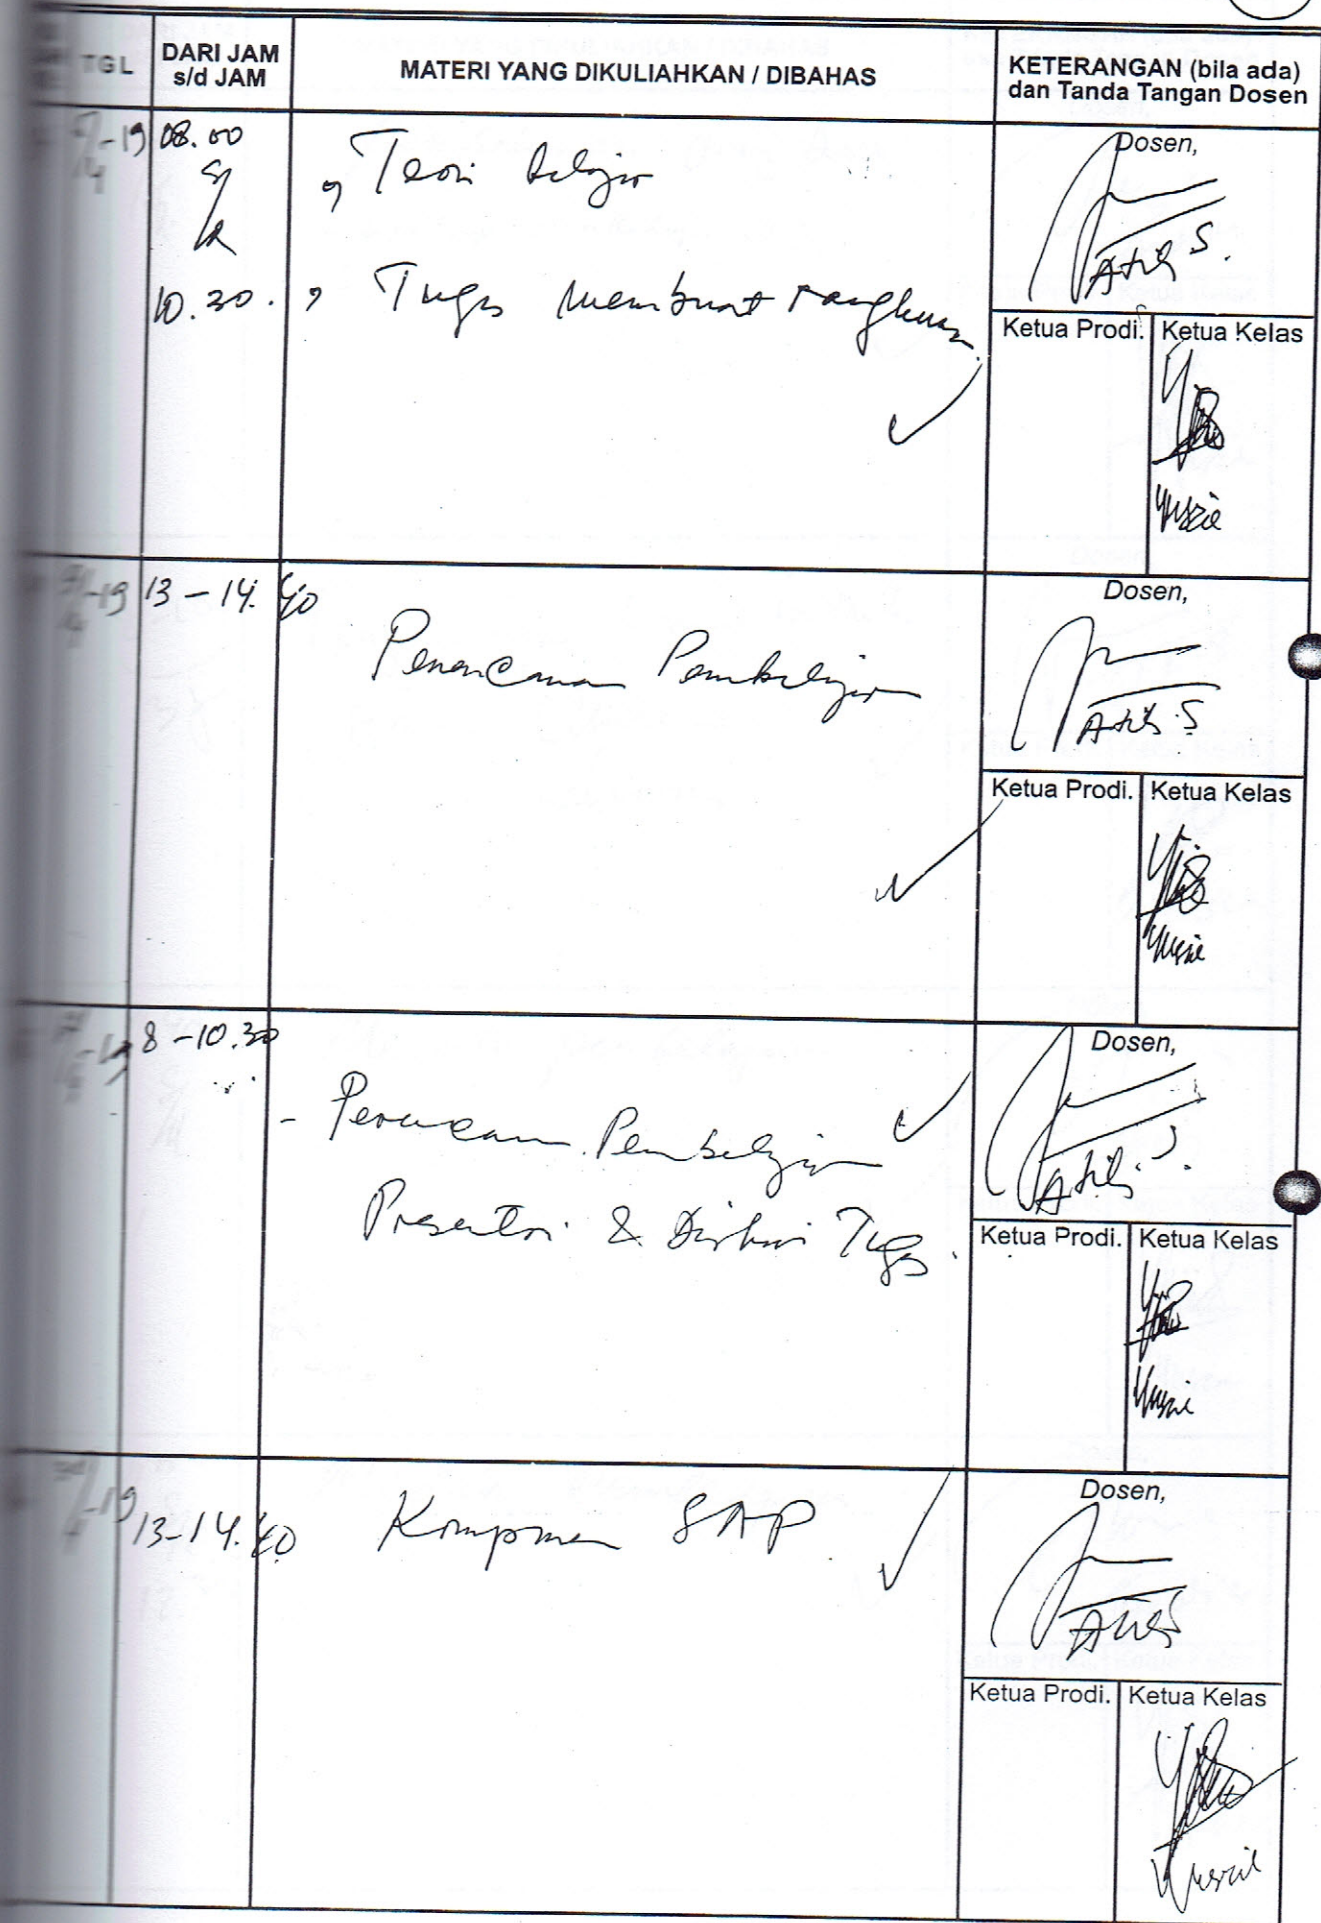 TGL
DARI JAM
s/d JAM
MATERI YANG DIKULIAHKAN / DIBAHAS
KETERANGAN (bila ada)
dan Tanda Tangan Dosen
08.00
Teori belajar
10.30.
Tugas membuat rangkuman
Dosen,
Ketua Prodi.
Ketua Kelas
Yusril
13 - 14.40
Perencanaan Pembelajaran
Dosen,
Ketua Prodi.
Ketua Kelas
Yusril
8 - 10.30
- Perencanaan Pembelajaran
Presentasi & Diskusi Tugas.
Dosen,
Ketua Prodi.
Ketua Kelas
Yusril
13-14.40
Komponen SAP
Dosen,
Ketua Prodi.
Ketua Kelas
Yusril